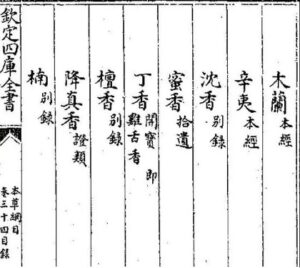 木蘭本經
辛夷本經
沈香别錄
蜜香拾遺
丁香開寶 即雞舌香
檀香别錄
降真香證類
楠别錄
欽定四庫全書
本草綱目
卷三十四目錄